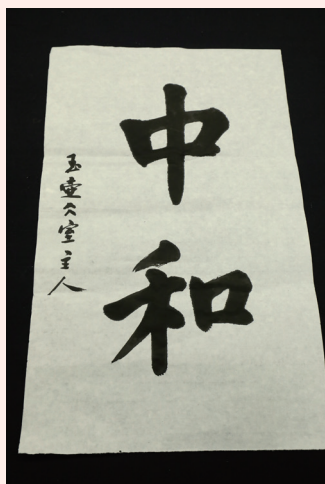 中和
玉壶六室主人